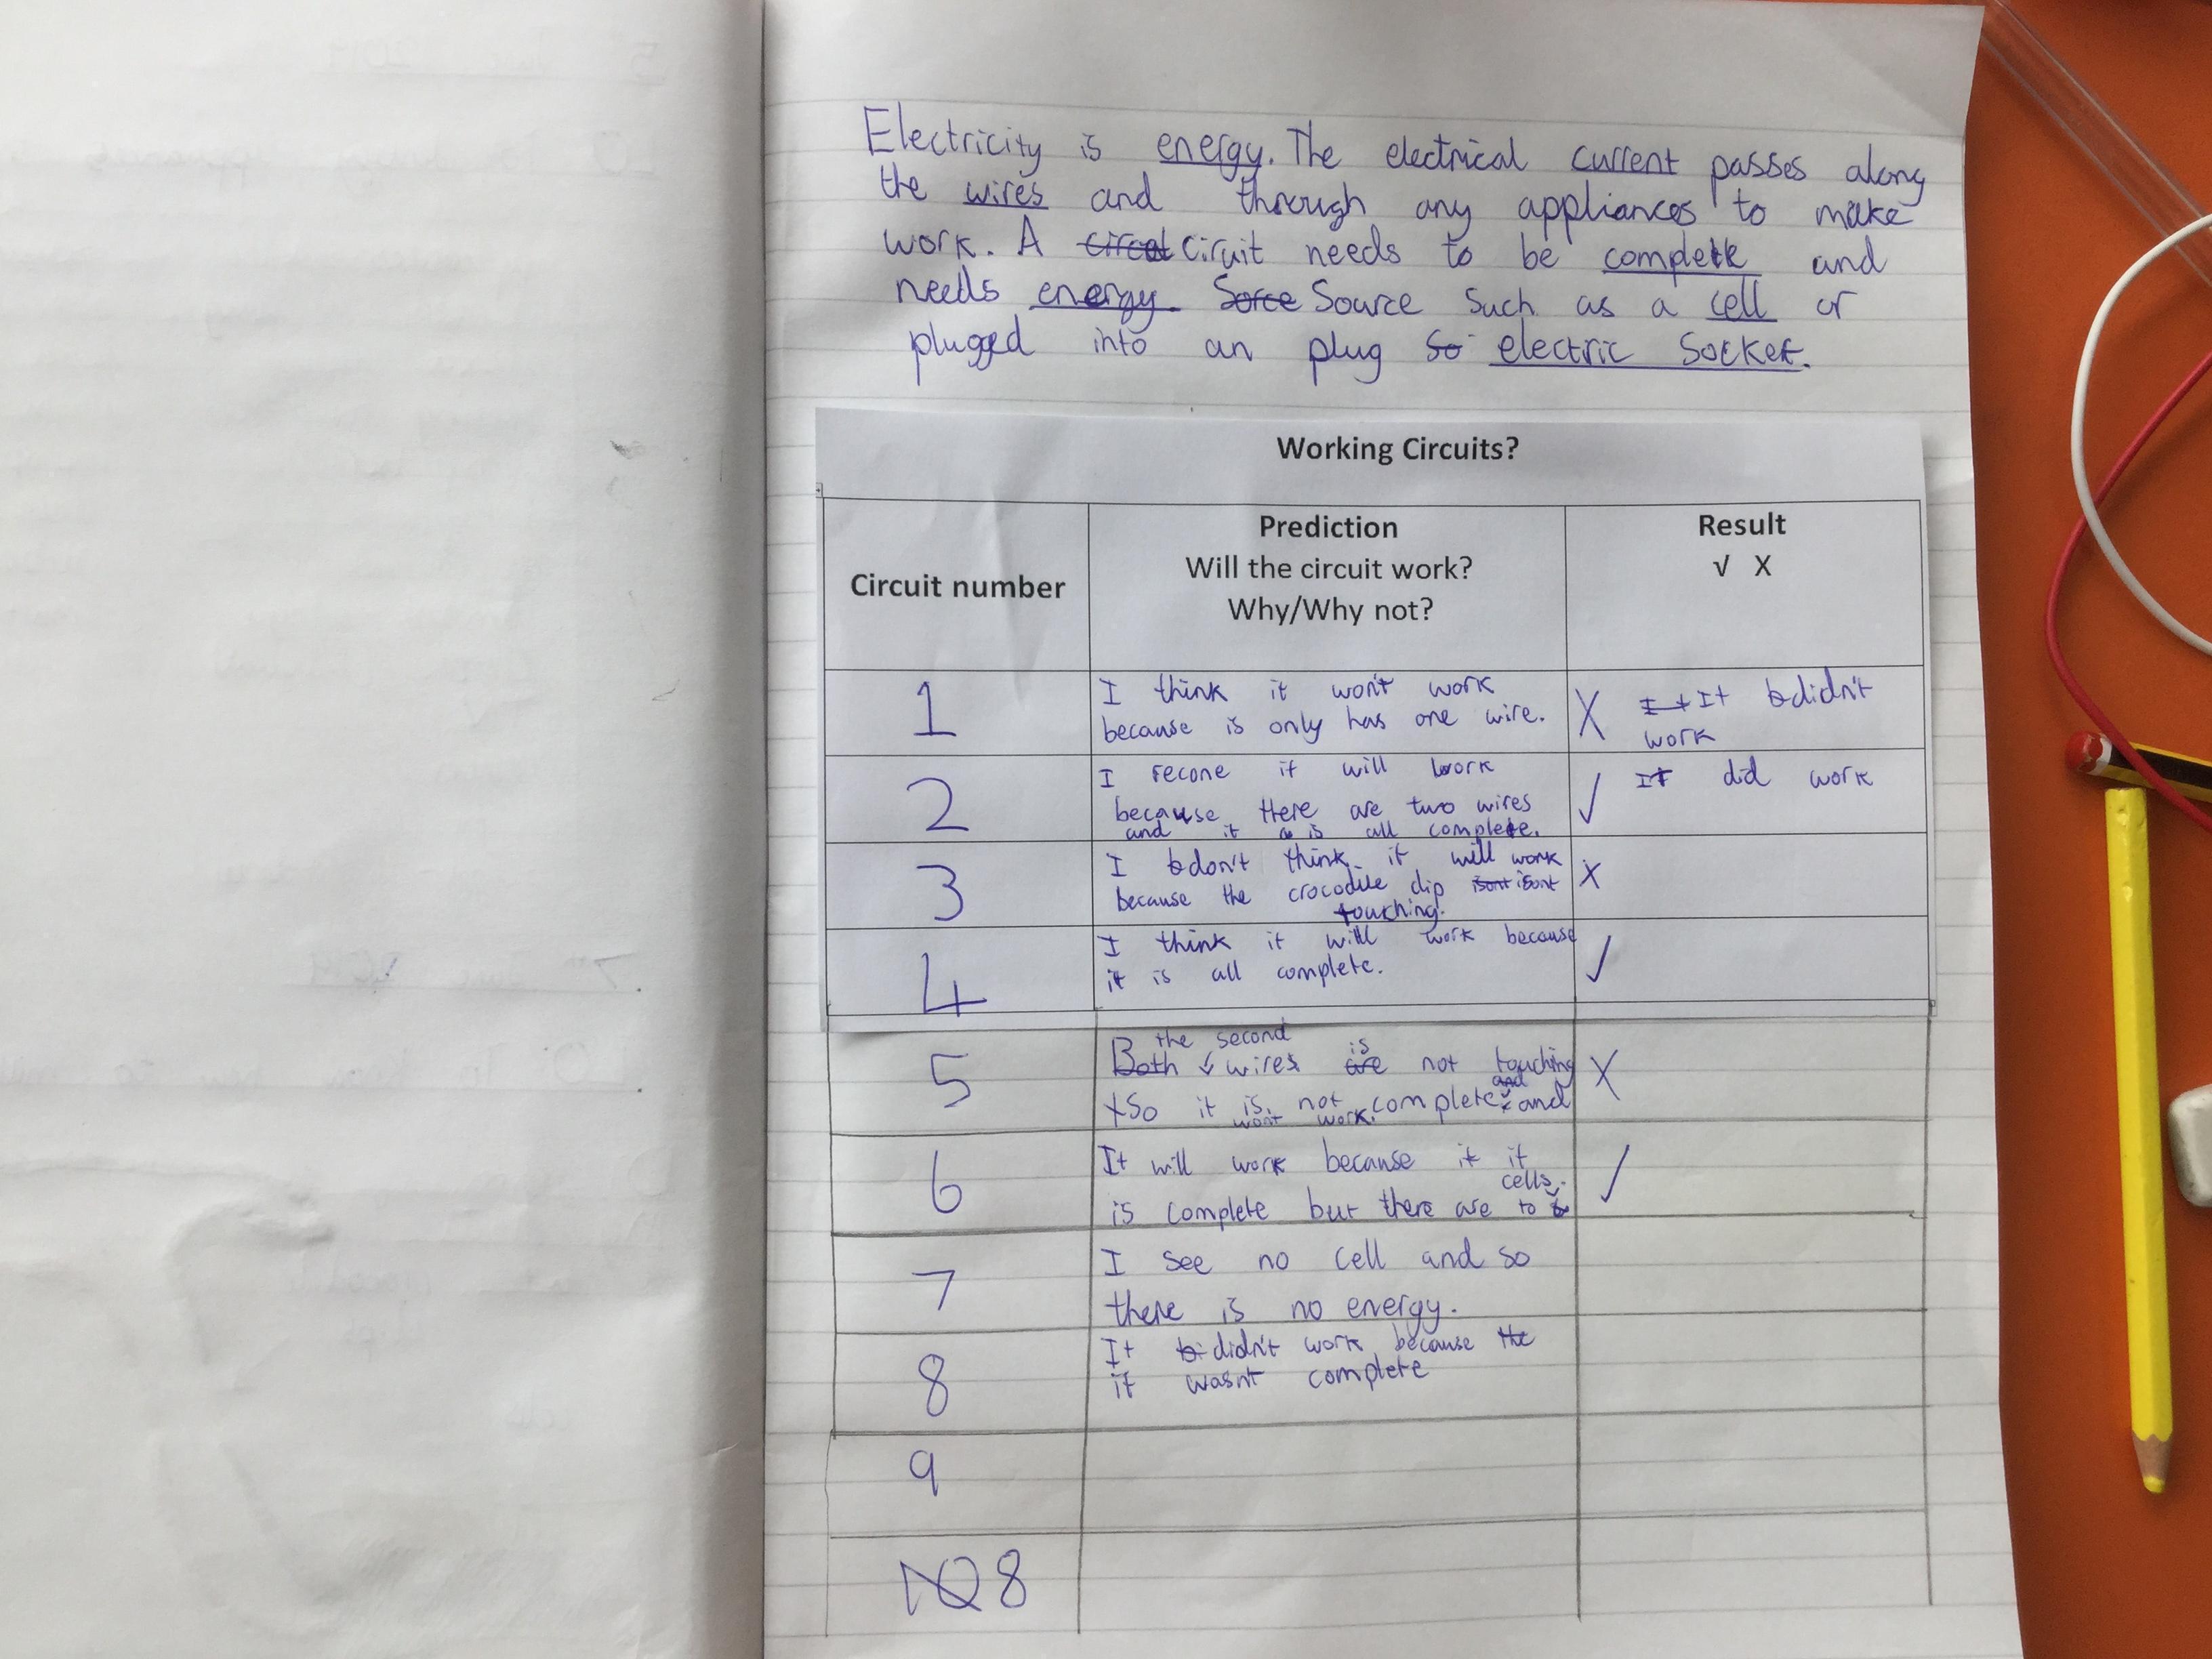 Electricity is energy. The electrical current passes along
the wires and through any appliances to make
work. A Ciruit needs to be complete and
needs energy. Sorce Source such as a cell or
pluged into an plug so electric Socket.
Working Circuits?
Circuit number
Prediction
Will the circuit work?
Why/Why not?
Result
√ X
1
I think it won't work
because is only has one wire.
X It didn't
work
2
I recone it will work
because there are two wires
and it is all complete.
✓ It did work
3
I don't think it will work
because the crocodile clip isont isont
touching.
X
4
I think it will work because
it is all complete.
✓
5
the second
Both wires are is not touching
So it is not complete and
wont work.
X
6
It will work because it it
cells.
is complete but there are to
✓
7
I see no cell and so
there is no energy.
8
It didn't work because the
it wasn't complete
9
10 8